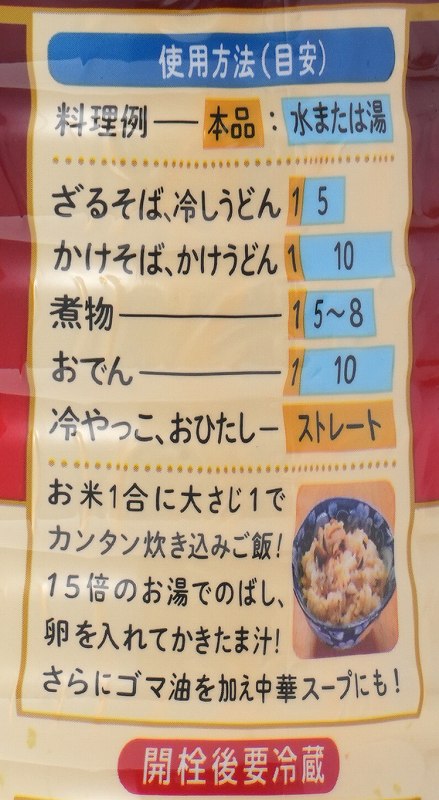 使用方法(目安)
料理例 ── 本品 : 水または湯
ざるそば、冷しうどん 1 5
かけそば、かけうどん 1 10
煮物 ────── 1 5〜8
おでん ────── 1 10
冷やっこ、おひたし─ ストレート
お米1合に大さじ1で
カンタン炊き込みご飯!
15倍のお湯でのばし、
卵を入れてかきたま汁!
さらにゴマ油を加え中華スープにも!
開栓後要冷蔵